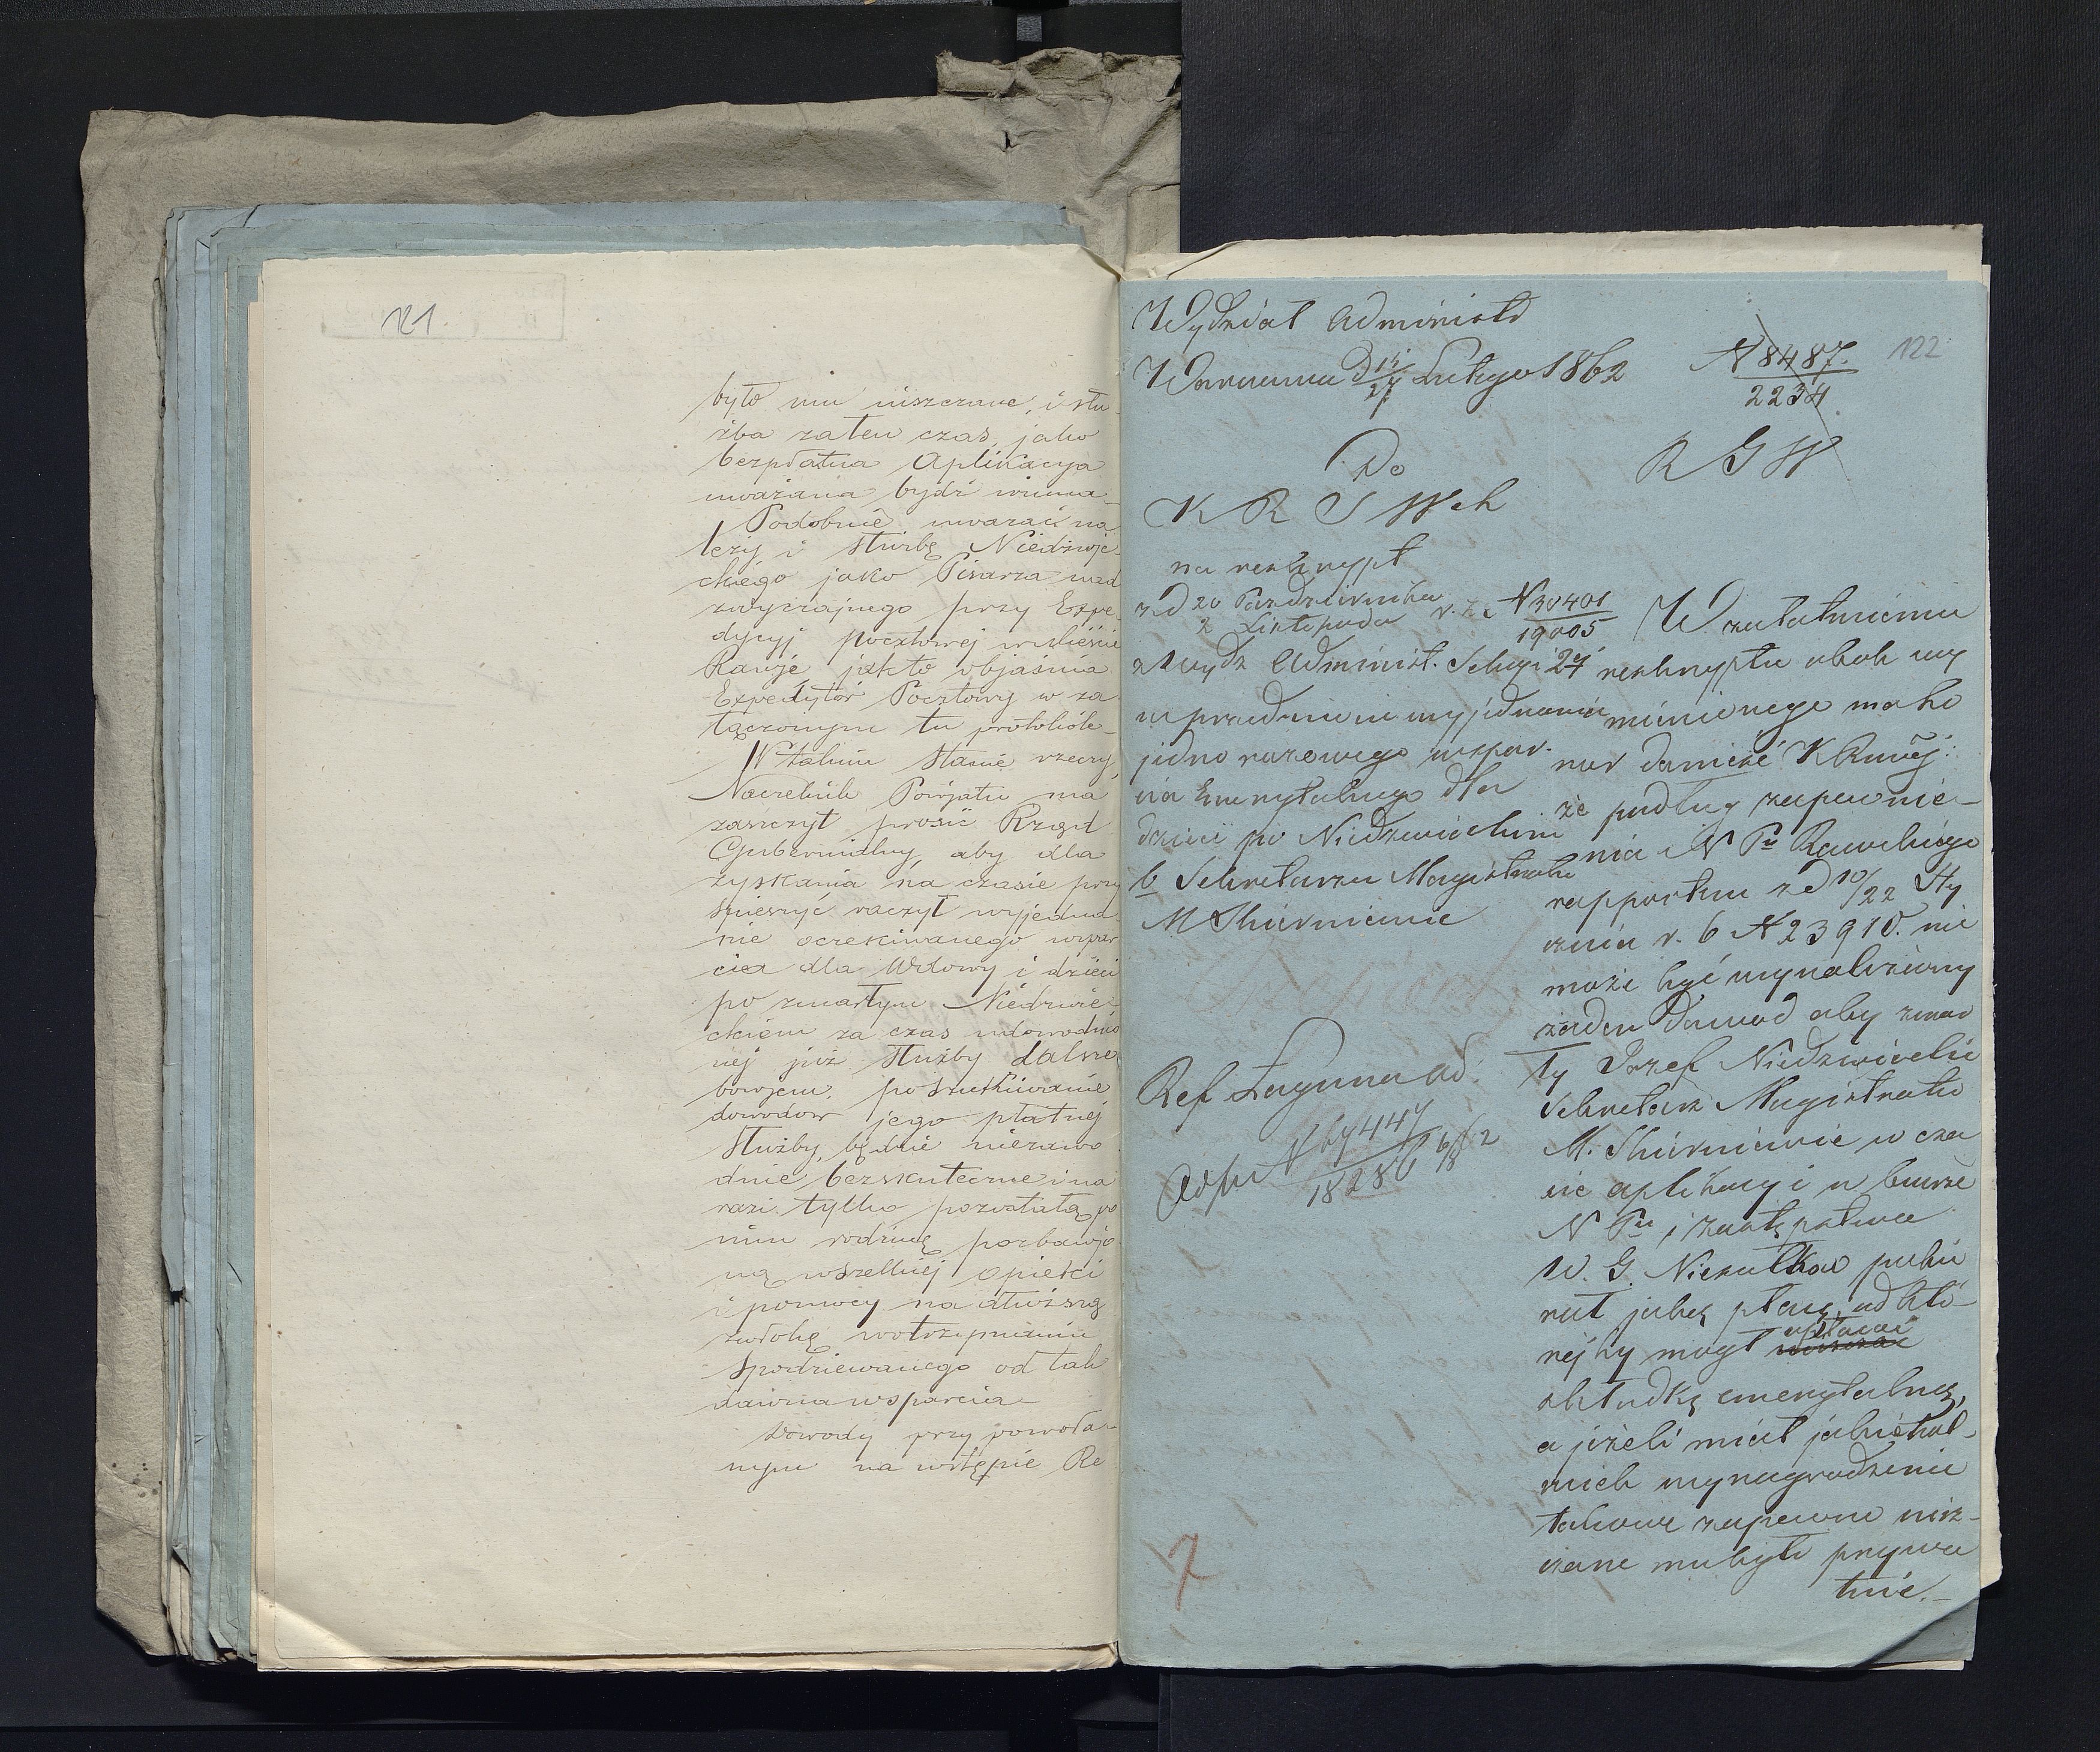 121.
było mu uiszczane, i słu-
żba za ten czas, jako
bezpłatna Aplikacya
uważana bydź winna.
Podobnie uważać na
leży i służbę Niedzwie-
ckiego jako Pisarza nad
zwyczajnego przy Expe-
dycyj pocztowej w mieście
Rawie jak to objaśnia
Expedytor Pocztowy w za
łączonym tu protokóle.
W takim stanie rzeczy
Naczelnik Powiatu ma
zaszczyt prosić Rząd
Gubernialny, aby dla
zyskania na czasie przy
śpieszyć raczył wyjedna
nie oczekiwanego wspar
cia dla Wdowy i dzieci
po zmarłym Niedzwie-
ckiem za czas udowodnio
nej już służby dalsze
bowiem, poszukiwanie
dowodów jego płatnej
służby, będzie niezawo
dnie bezskuteczne i na
razi tylko pozostałą po
nim rodzinę pozbawio
ną wszelkiej opieki
i pomocy na dłuższą
zwłokę w otrzymaniu
spodziewanego od tak
dawna wsparcia
Dowody przy powoła-
nym na wstępie Re
122
Wydział Administr
Warszawa d 15/27 Lutego 1862
N 8487.
2234
R G W
Do
K R S W ch
na reskrypt
z d 20 Października
2 Listopada r. z. N 30401
19005
z Wydz Administ. Sekcyi
w przedmiocie wyjednania
jedno razowego wspar-
cia Emerytalnego dla
dzieci po Niedzwieckim
b Sekretarzu Magistratu
M Skierniewic
Ref Laguna ad.
N by 447
18286
W zadałnieniu
reskryptu obok wy
mienionego ma ho
nor donieść K Rząj:
że podług zapewnie-
nia N Pu Rawskiego
rapportem z d 10/22 Sty
cznia r. b N 23910. nie
może być wynaleziony
żaden dowód aby zmar
ły Józef Niedzwiecki
Sekretarz Magistratu
M. Skierniewic w cza
sie aplikacyi w biurze
N Pu i zastępstwa
W. G. Niesułków pobie
rał jaką płacę, od któ-
rej by mógł opłacać
składkę emerytalną,
a jeżeli miał jakiekol-
wiek wynagrodzenie
takowe zapewne uisz-
czane mu było prywa
tnie.-
7